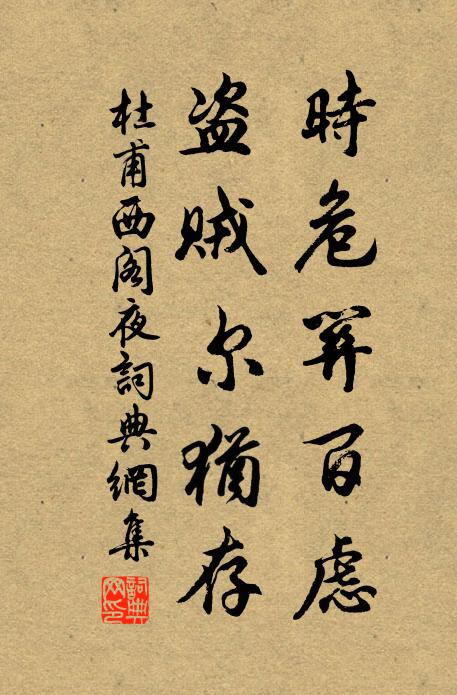 時危關百慮
盗賊尔猶存
杜甫西閣夜詞典網集
詞典
网印